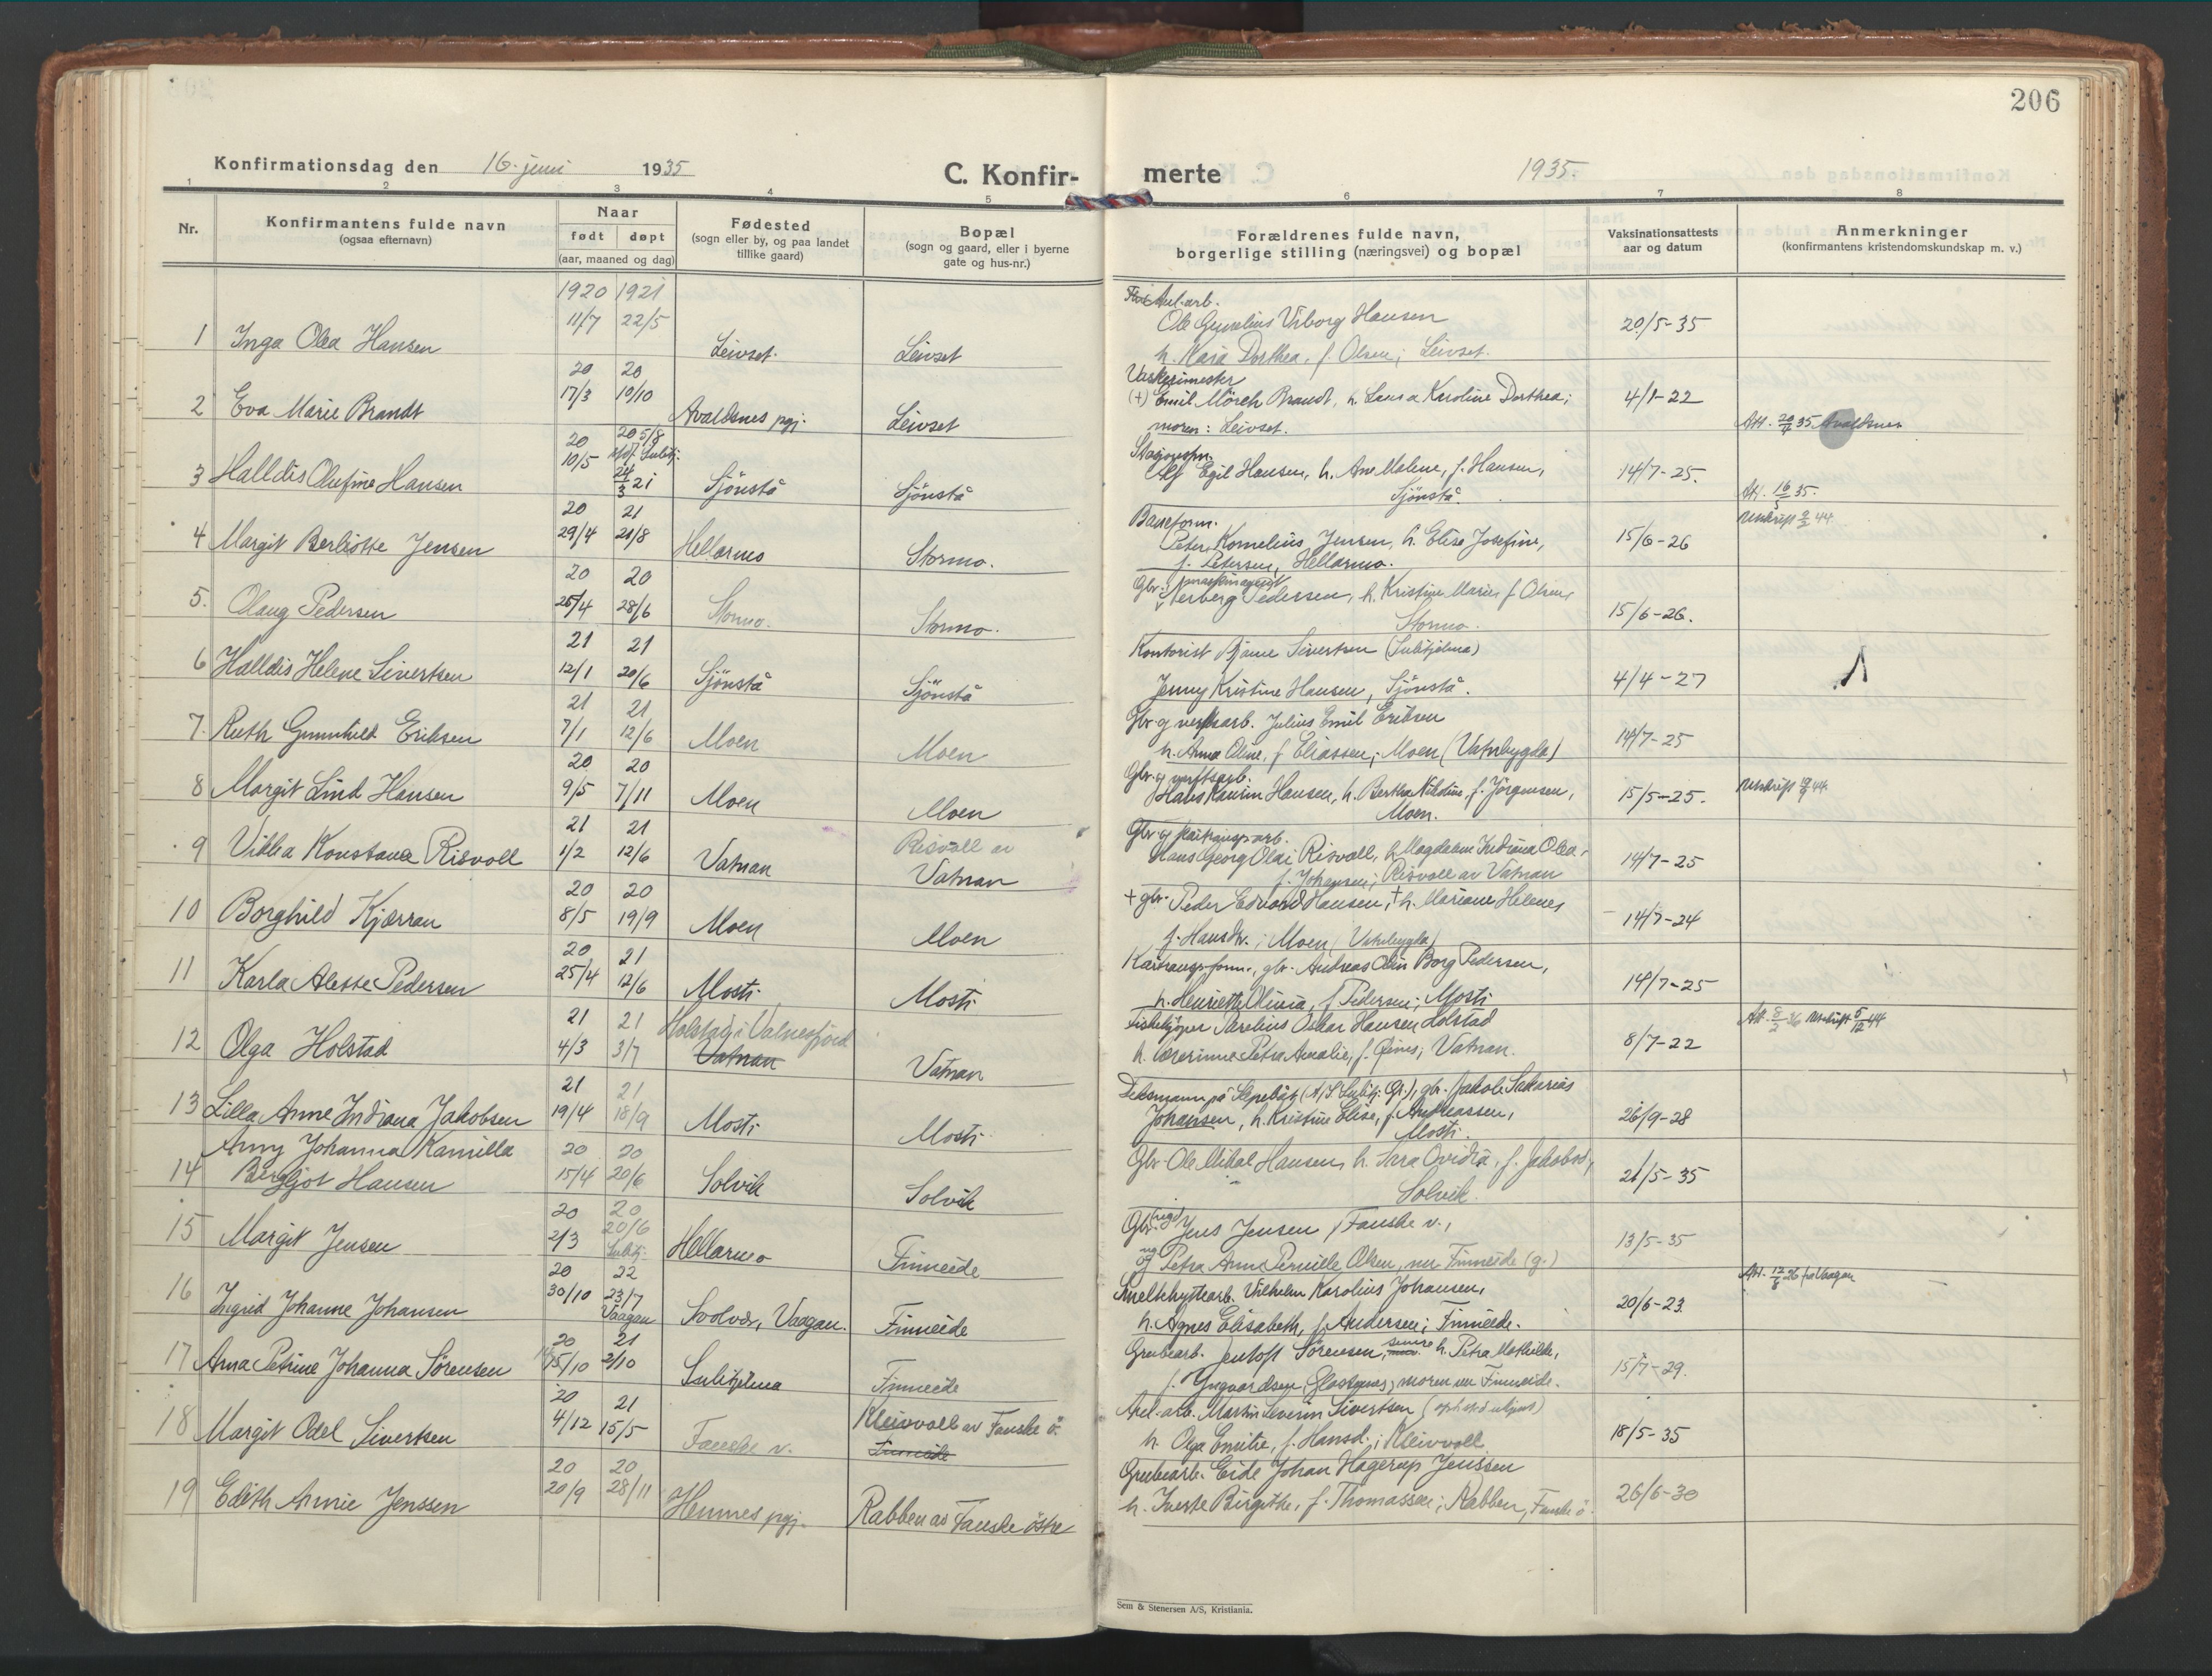 206
Konfirmationsdag den 16. juni 1935
C. Konfir-
merte
1935.
1 2 3 4 5 6 7 8
Nr.
Konfirmantens fulde navn
(ogsaa efternavn)
Naar
født døpt
(aar, maaned og dag)
Fødested
(sogn eller by, og paa landet
tillike gaard)
Bopæl
(sogn og gaard, eller i byerne
gate og hus-nr.)
Forældrenes fulde navn,
borgerlige stilling (næringsvei) og bopæl
Vaksinationsattests
aar og datum
Anmerkninger
(konfirmantens kristendomskundskap m. v.)
1920 1921
11/7 22/5
1 Inga Olea Hansen Leivset. Leivset
Anl.arb.
Ole Viborg Hansen
h. Kaia Dorthea, f. Olsen; Leivset.
20/5-35
20 20
17/3 10/10
2 Eva Marie Brandt Avaldsnes pgj. Leivset
Vaskerimester
(+) Emil Mörch Brandt, h. Laura Karoline Dorthea;
moren: Leivset.
4/1-22
Att. 20/4 35 Avaldsnes
20 20 5/8
10/5 Sulitj.
24/3 21
3 Halldis Olufine Hansen Sjönstå Sjönstå
Stasjonsfm.
Alf Egil Hansen, h. Ane Malene, f. Hansen,
Sjönstå.
14/7-25.
Att. 16/5 35.
20 21
29/4 21/8
4 Margit Berliotte Jensen Hellarmo Stormo.
Baneform.
Peter Kornelius Jensen, h. Elise Josefine,
f. Petersen, Hellarmo.
15/6-26
Utskrift 2/2 44
20 20
25/4 28/6
5. Olaug Pedersen Stormo. Stormo.
Gbr.
Pedersen, h. Kristine Marie, f. Olsen,
Stormo.
15/6-26.
21 21
12/1 20/6
6 Halldis Helene Sivertsen Sjönstå Sjönstå
Kontorist Bjarne Sivertsen (Sulitjelma)
Jenny Kristine Hansen, Sjönstå.
4/4-27
21 21
7/1 12/6
7. Ruth Gunnhild Eriksen Moen Moen
Gbr. og verksarb. Julius Emil Eriksen
h. Anna Oline, f. Eliassen; Moen (Vatnbygda)
14/7-25
20 20
9/5 7/11
8 Margit Lind Hansen Moen Moen
Gbr. og
Hansen, h. Bertha Nikoline, f. Jörgensen,
Moen.
15/5-25.
Utskrift 19/9 44.
21 21
1/2 12/6
9 Vikka Konstanse Risvoll Vatnan
Risvoll av
Vatnan
Gbr. og
Hans Georg Olai Risvoll, h. Magdalene Indiana Olea,
f. Johansen; Risvoll av Vatnan
14/7-25
20 20
8/5 19/9
10 Borghild Kjærran Moen Moen
+ gbr. Peder Edvard Hansen, + h. Mariane Helene,
f. Hansdtr.; Moen (Vatnbygda)
14/7-24
20 21
25/4 12/6
11 Karla Alette Pedersen Mosti Mosti
gbr. Andreas Olin Borg Pedersen,
h. Henriette Olivia, f. Pedersen; Mosti
14/7-25
21 21
4/3 3/7
12 Olga Holstad
Holstad i Valnesfjord
Vatnan
Vatnan
Fiskekjøper Parelius Oskar Hansen Holstad
h. lærerinne Petra Amalie, f. Vatnan.
8/7-22
Att. 8/2 36 Utskrift 5/12 44
21 21
19/4 18/9
13 Lilla Anne Indiana Jakobsen Mosti Mosti
Dekksmann på slepebåt (A/S Sulitj. Gr.), gbr. Jakob Sakarias
Johansen, h. Kristine Elise, f. Andreassen,
Mosti.
26/9-28
Anny Johanna Kamilla 20 20
15/4 20/6
14 Bergljot Hansen Solvik Solvik
Gbr. Ole Mikal Hansen, h. Sara Ovidia, f. Jakobsd,
Solvik.
21/5-35
20 20
2/3 20/6
Sulitj.
15 Margit Jensen Hellarmo Finneide
Gbr. Jens Jensen, Fauske v.,
og Petra Anna Pernille Olsen, nu Finneide (g.)
13/5-35
20 22
30/10 23/7
Vaagan
16 Ingrid Johanne Johansen Svolvær, Vaagan. Finneide
Smeltehyttearb. Vilhelm Karolius Johansen,
h. Agnes Elisabeth, f. Andersen; Finneide.
20/6-23.
20 21
15/10 2/10
17 Anna Petrine Johanna Sørensen Sulitjelma Finneide
Grubearb. Jentoft Sörensen, h. Petra Mathilde,
f. Yngvardsen, moren nu Finneide.
15/7-29.
20 21
4/12 15/5
18 Margit Odel Sivertsen Fauske v.
Kleivvoll av Fauske ö.
Finneide
Anl.arb. Martin Severin Sivertsen
h. Olga Emilie, f. Hansd.; Kleivvoll
18/5-35
20 20
20/9 28/11
19 Edith Annie Jenssen Hemnes pgj. Rabben av Fauske östre
Grubearb. Eide Johan Hagerup Jenssen
h. Iverte Birgithe, f. Thomassen; Rabben, Fauske ö.
26/6-30
Sem & Stenersen A/S, Kristiania.